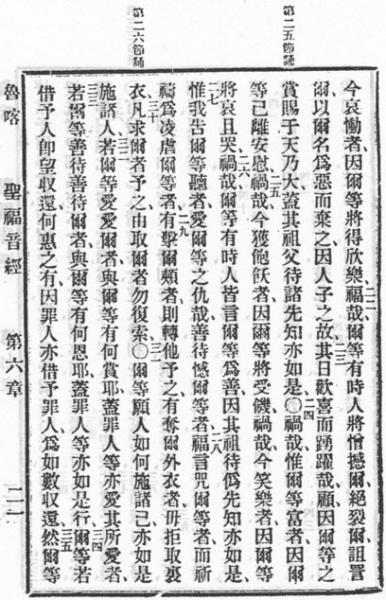 第二五節誦
第二六節誦
二二
今哀慟者因爾等將得欣樂福哉爾等有時人將憎憾爾絕裂爾詛詈
二三
爾以爾名爲惡而棄之因人子之故其日歡喜而踴躍哉顧因爾等之
二四
賞賜于天乃大蓋其祖父待諸先知亦如是〇禍哉惟爾等富者因爾
二五
等己離安慰禍哉今獲飽飫者因爾等將受饑禍哉今笑樂者因爾等
二六
將哀且哭禍哉爾等有時人皆言爾等爲善因其祖待僞先知亦如是
二七 二八
惟我告爾等聽者愛爾等之仇哉善待憾爾等者福言咒爾等者而祈
二九
禱爲凌虐爾等者有擊爾頰者則轉他予之有奪爾外衣者毋拒取裏
三十 三一
衣凡求爾者予之由取爾者勿復索〇爾等願人如何施諸己亦如是
三二
施諸人若爾等愛愛爾者與爾等有何賞耶蓋罪人等亦愛其所愛者
三三 三四
若爾等善待善待爾者與爾等有何恩耶蓋罪人等亦如是行爾等若
三五
借予人卽望收還何惠之有因罪人亦借予罪人爲如數收還然爾等
魯喀 聖福音經 第六章 二一